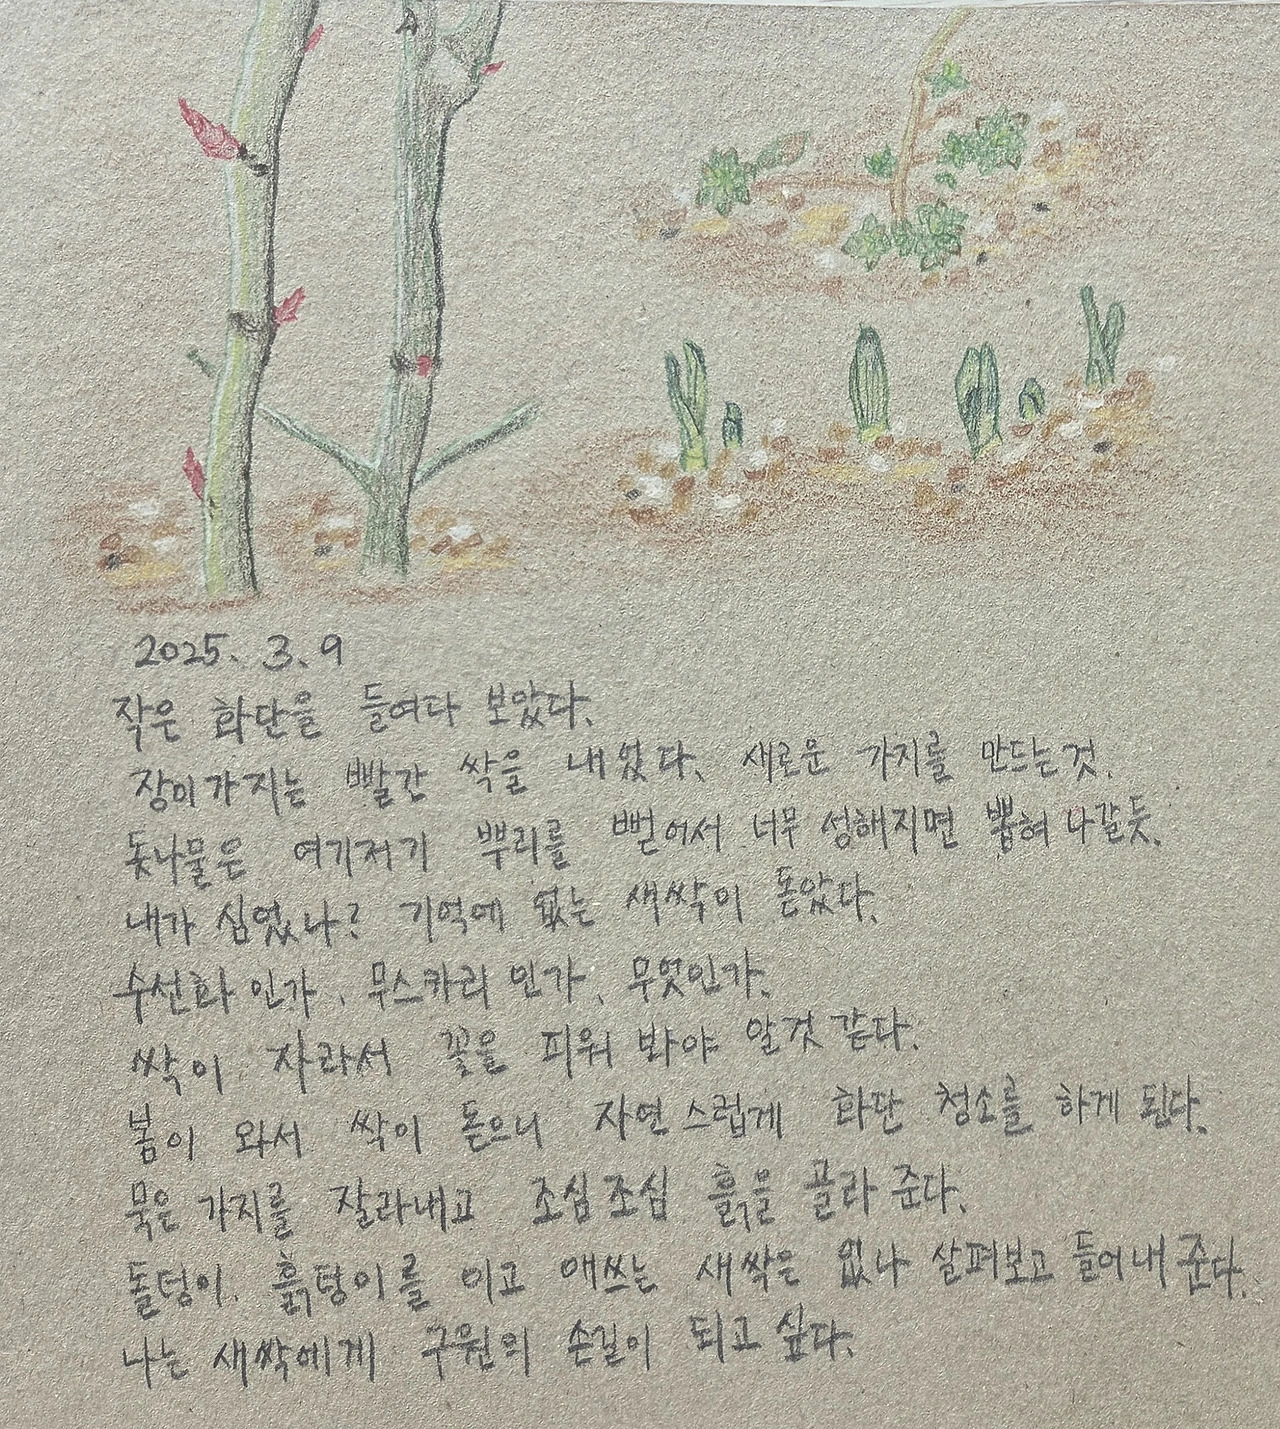 2025. 3. 9
작은 화단을 들여다 보았다.
장미가지는 빨간 싹을 내었다. 새로운 가지를 만드는것.
돗나물은 여기저기 뿌리를 뻗어서 너무 성해지면 뽑혀 나갈듯.
내가 심었나? 기억에 없는 새싹이 돋았다.
수선화인가, 무스카리인가, 무엇인가.
싹이 자라서 꽃을 피워 봐야 알것 같다.
봄이 와서 싹이 돋으니 자연스럽게 화단 청소를 하게 된다.
묵은 가지를 잘라내고 조심조심 흙을 골라 준다.
돌덩이. 흙덩이를 이고 애쓰는 새싹은 없나 살펴보고 들어내 준다.
나는 새싹에게 구원의 손길이 되고 싶다.